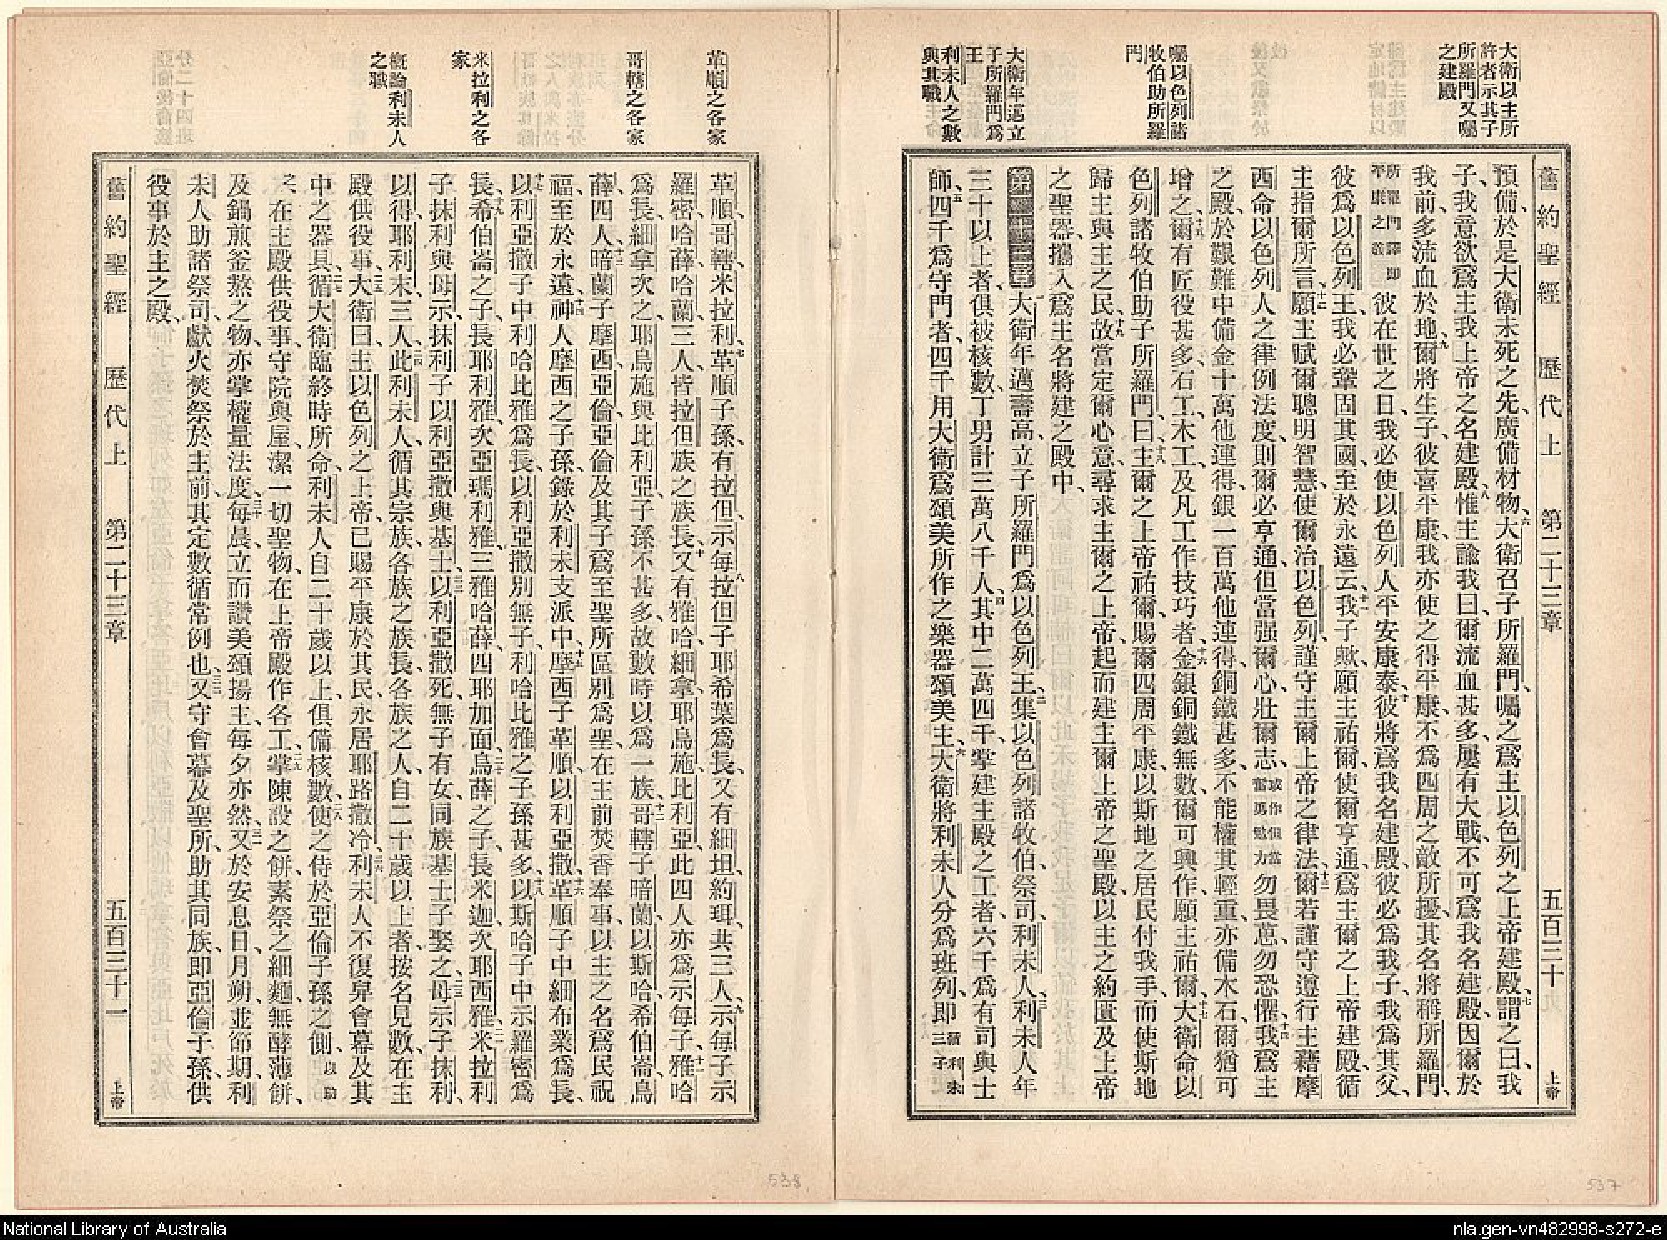 大衛以主所
許者示其子
所羅門又囑
之建殿
囑以色列諸
牧伯助所羅
門
大衛年邁立
子所羅門爲
王
利未人之數
與其職
舊約聖經 歷代上 第二十三章 五百三十 上帝
預備於是大衛未死之先廣備材物六大衛召子所羅門囑之爲主以色列之上帝建殿七謂之曰我
子我意欲爲主我上帝之名建殿八惟主諭我曰爾流血甚多屢有大戰不可爲我名建殿因爾於
我前多流血於地九爾將生子彼喜平康我亦使之得平康不爲四周之敵所擾其名將稱所羅門
所羅門譯即平康之義彼在世之日我必使以色列人平安康泰十彼將爲我名建殿彼必爲我子我爲其父
彼爲以色列王我必鞏固其國至於永遠云十一我子歟願主祐爾使爾亨通爲主爾之上帝建殿循
主指爾所言十二願主賦爾聰明智慧使爾治以色列謹守主爾上帝之律法十三爾若謹守遵行主藉摩
西命以色列人之律例法度則爾必亨通但當强爾心壯爾志或作但當奮勇勉力勿畏葸勿恐懼十四我爲主
之殿於艱難中備金十萬他連得銀一百萬他連得銅鐵甚多不能權其輕重亦備木石爾猶可
增之十五爾有匠役甚多石工木工及凡工作技巧者十六金銀銅鐵無數爾可興作願主祐爾十七大衛命以
色列諸牧伯助子所羅門曰十八主爾之上帝祐爾賜爾四周平康以斯地之居民付我手而使斯地
歸主與主之民十九故當定爾心意尋求主爾之上帝起而建主爾上帝之聖殿以主之約匱及上帝
之聖器攜入爲主名將建之殿中
第二十三章一大衛年邁壽高立子所羅門爲以色列王二集以色列諸牧伯祭司利未人三利未人年
三十以上者俱被核數丁男計三萬八千人四其中二萬四千掌建主殿之工者六千爲有司與士
師五四千爲守門者四千用大衛爲頌美所作之樂器頌美主六大衛將利未人分爲班列即循利未三子
革順之各家
哥轄之各家
米拉利之各
家
概論利未人
之職
革順哥轄米拉利七革順子孫有拉但示每八拉但子耶希葉爲長又有細坦約珥共三人九示每子示
羅密哈薛哈蘭三人皆拉但族之族長十又有雅哈細拿耶烏施比利亞此四人亦爲示每子十一雅哈
爲長細拿次之耶烏施與比利亞子孫不甚多故數時以爲一族十二哥轄子暗蘭以斯哈希伯崙烏
薛四人十三暗蘭子摩西亞倫亞倫及其子爲至聖所區別爲聖在主前焚香奉事以主之名爲民祝
福至於永遠十四神人摩西之子孫錄於利未支派中十五摩西子革順以利亞撒十六革順子中細布業爲長
十七以利亞撒子中利哈比雅爲長以利亞撒別無子利哈比雅之子孫甚多十八以斯哈子中示羅密爲
長十九希伯崙之子長耶利雅次亞瑪利雅三雅哈薛四耶加面二十烏薛之子長米迦次耶西雅二一米拉利
子抹利與母示抹利子以利亞撒與基士二二以利亞撒死無子有女同族基士子娶之二三母示子抹利
以得耶利末三人二四此利未人循其宗族各族之族長各族之人自二十歲以上者按名見數在主
殿供役事二五大衛曰主以色列之上帝已賜平康於其民永居耶路撒冷二六利未人不復舁會幕及其
中之器具二七循大衛臨終時所命利未人自二十歲以上俱備核數二八使之侍於亞倫子孫之側以助
之在主殿供役事守院與屋潔一切聖物在上帝殿作各工二九掌陳設之餅素祭之細麵無酵薄餅
及鍋煎釜熬之物亦掌權量法度三十每晨立而讚美頌揚主每夕亦然三一又於安息日月朔並節期利
未人助諸祭司獻火焚祭於主前其定數循常例也三二又守會幕及聖所助其同族即亞倫子孫供
役事於主之殿
舊約聖經 歷代上 第二十三章 五百三十一 上帝
538
537
National Library of Australia
nla.gen-vn482998-s272-e